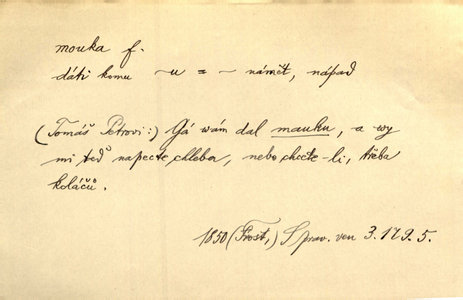 mouka f.
dáti komu ~u = ~ námět, nápad
(Tomáš Petrovi:) Já wám dal mauku, a wy
mi teď napecte chleba, nebo chcete-li, třeba
koláčů.
1850 (Frost,) Sprav. ven 3.179.5.